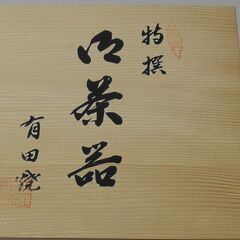 特撰
御茶器
有田焼